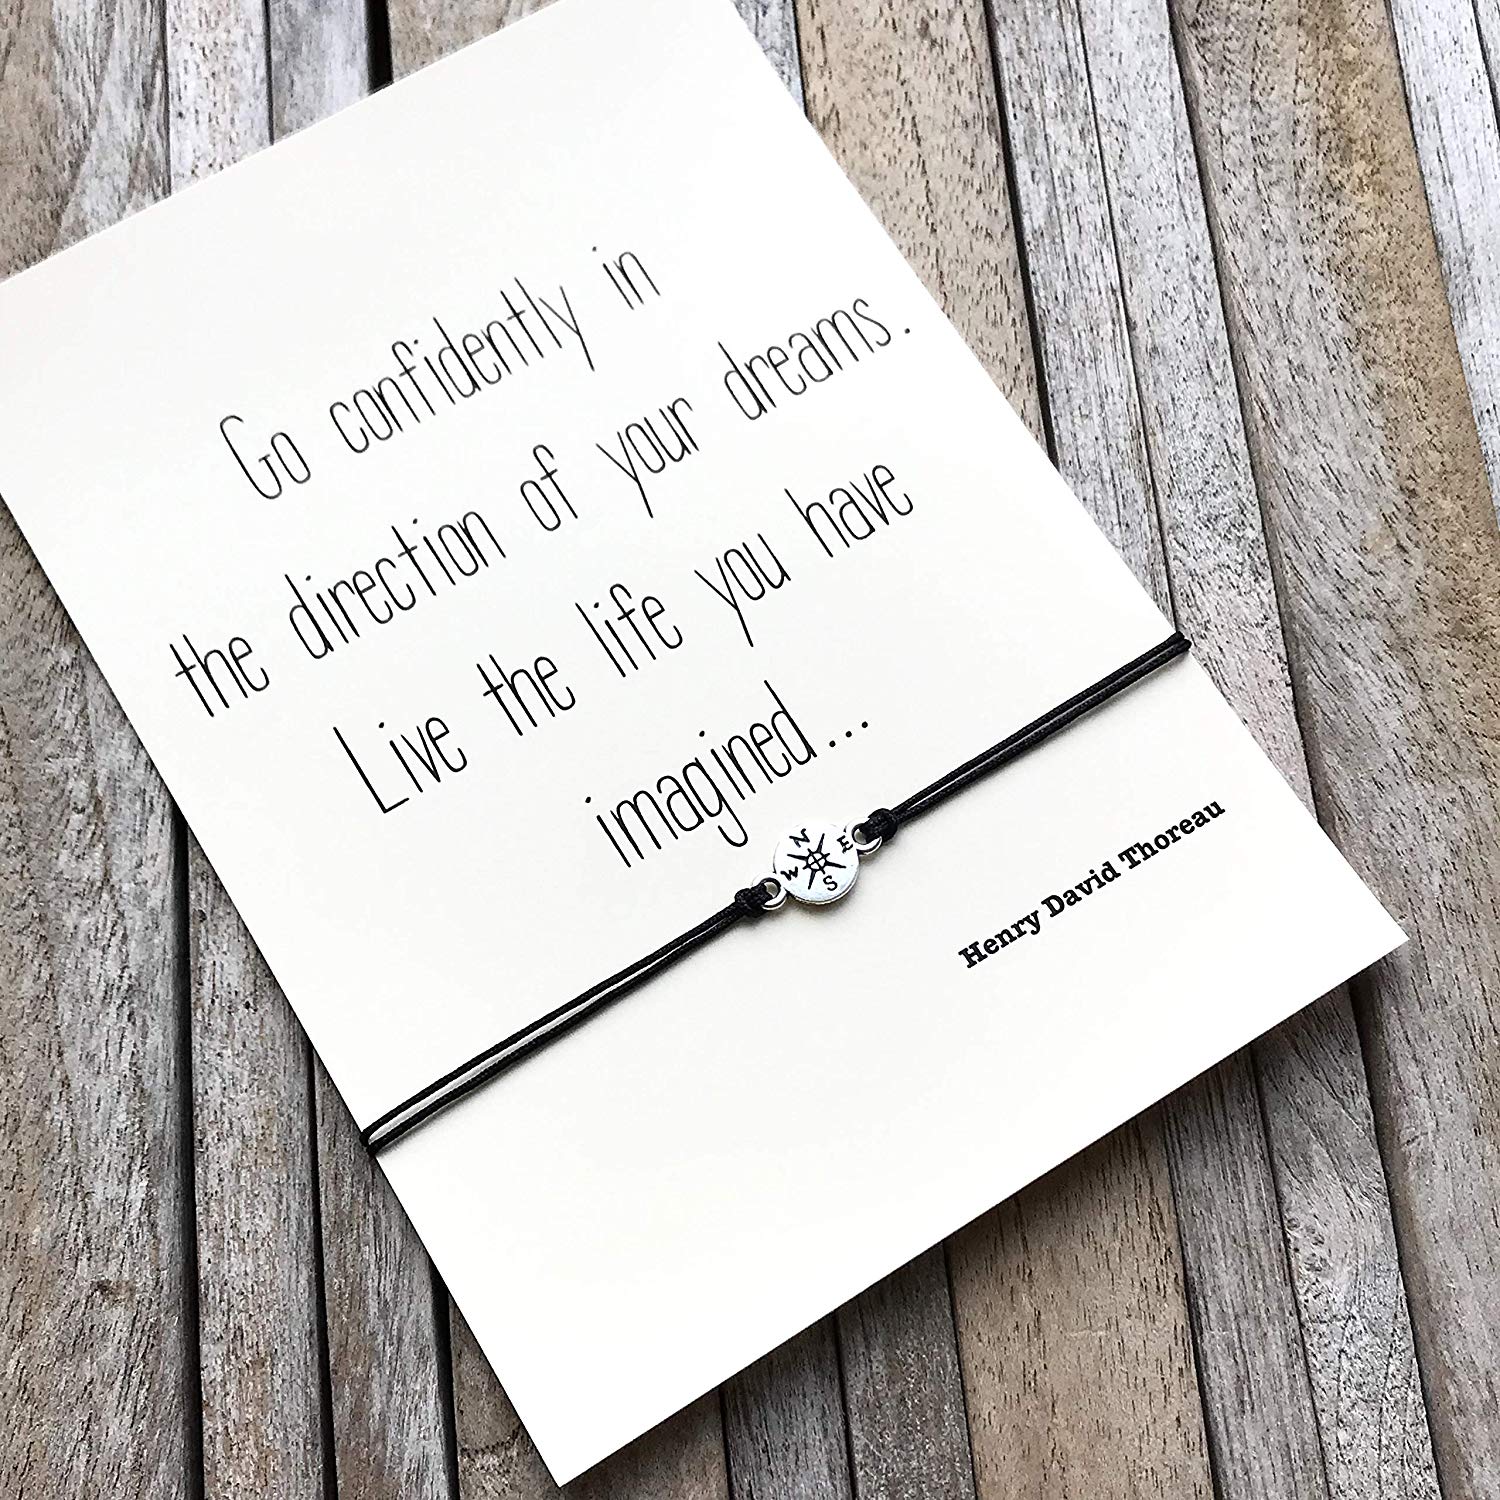 Go confidently in
the direction of your dreams.
Live the life you have
imagined...
N
W E
S
Henry David Thoreau